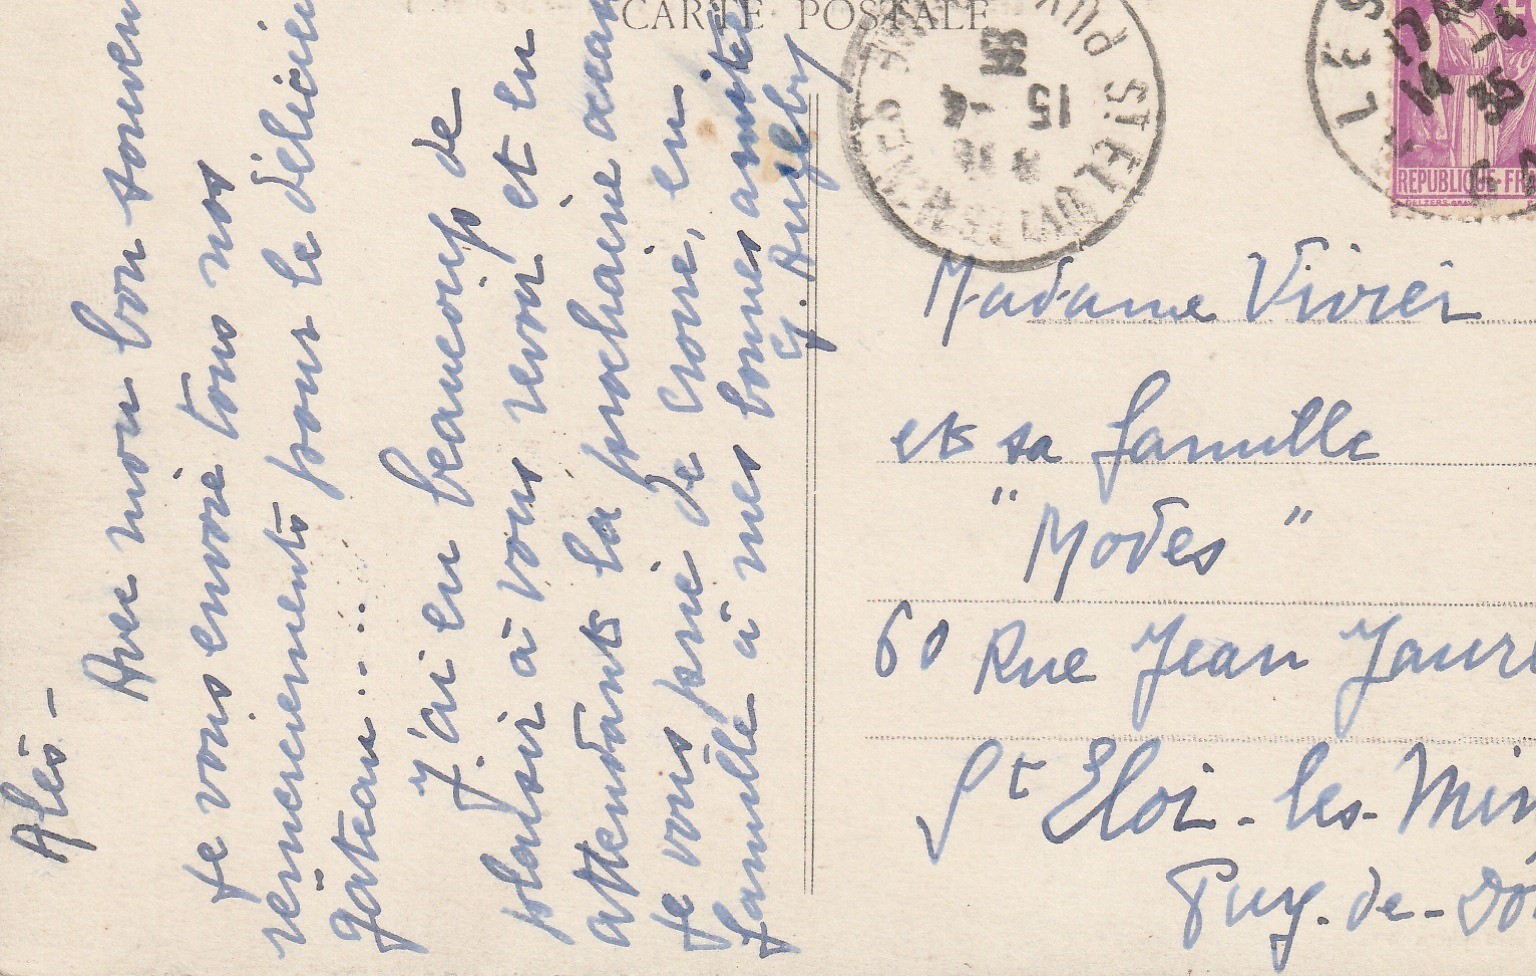 CARTE POSTALE
Alès -
Avec mon bon souvenir
je vous envoie tous nos
remerciements pour le délicieux
gateau.....
J'ai eu beaucoup de
plaisir à vous revoir et en
attendant la prochaine
je vous prie de croire, en
famille à mes bonnes amitiés
15 -4
35
St ELOY LES MINES
14 -4
35
REPUBLIQUE FR
Madame Vivier
et sa famille
"Modes"
60 Rue Jean Jaurè
St Eloi - les - Min
Puy - de - Dô